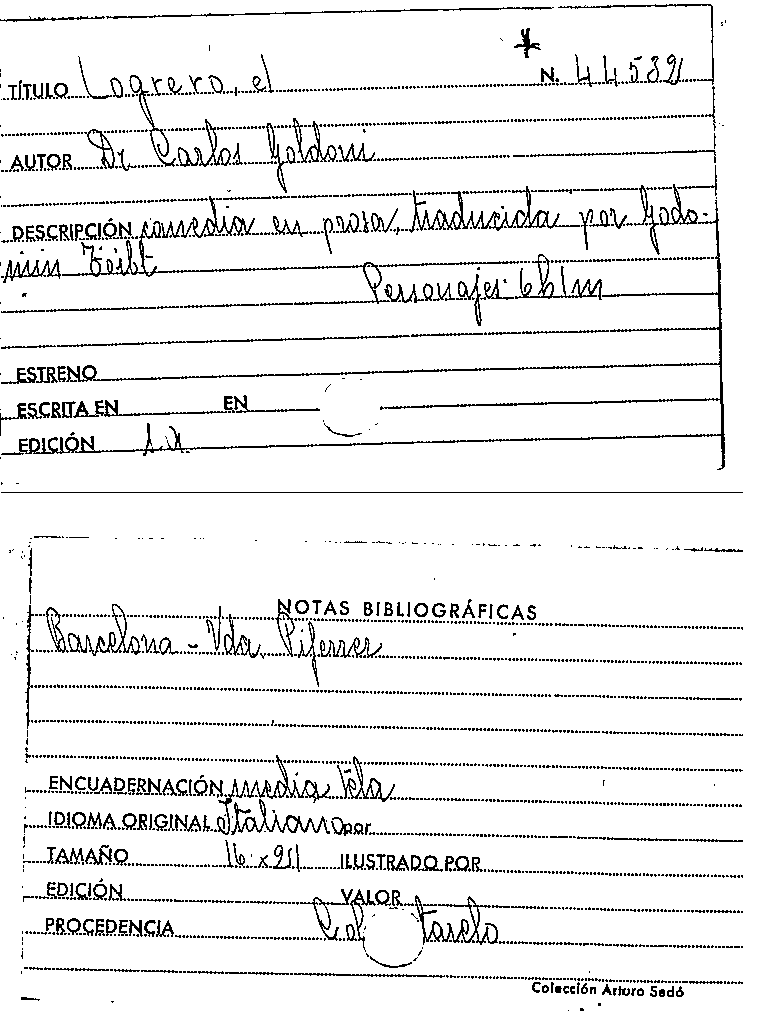 TÍTULO Logrero, el N. 44589
AUTOR Dr Carlos Goldoni
DESCRIPCIÓN comedia en prosa, traducida por Godo-
min
Personajes: 6h 1m
ESTRENO
ESCRITA EN EN
EDICIÓN s.a.
NOTAS BIBLIOGRÁFICAS
Barcelona - Vda. Piferrer
ENCUADERNACIÓN media tela
IDIOMA ORIGINAL Italiano por
TAMAÑO 16 x 21 ILUSTRADO POR
EDICIÓN VALOR
PROCEDENCIA
Colección Arturo Sedó